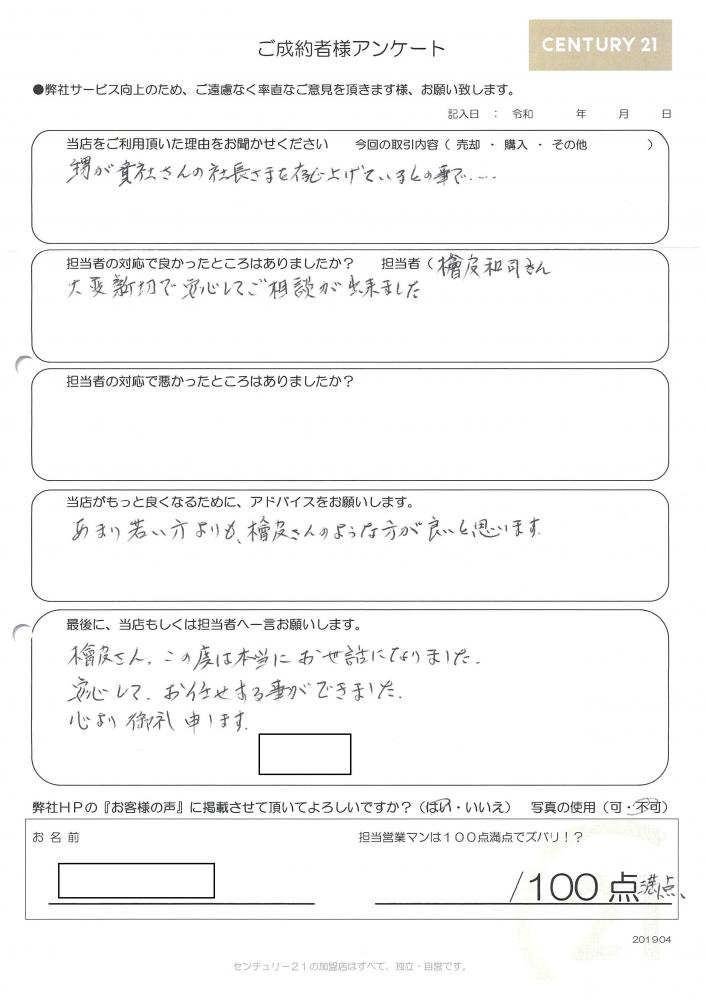 ご成約者様アンケート
CENTURY 21
●弊社サービス向上のため、ご遠慮なく率直なご意見を頂きます様、お願い致します。
記入日 ： 令和 年 月 日
当店をご利用頂いた理由をお聞かせください 今回の取引内容（ 売却 ・ 購入 ・ その他 ）
甥が貴社さんの社長さまを存じ上げているとの事で....
担当者の対応で良かったところはありましたか？ 担当者（檜皮和司さん
大変親切で安心してご相談が出来ました
担当者の対応で悪かったところはありましたか？
当店がもっと良くなるために、アドバイスをお願いします。
あまり若い方よりも、檜皮さんのような方が良いと思います。
最後に、当店もしくは担当者へ一言お願いします。
檜皮さん、この度は本当にお世話になりました。
安心して、お任せする事ができました。
心より御礼申します。
弊社ＨＰの『お客様の声』に掲載させて頂いてよろしいですか？（はい・いいえ） 写真の使用（可・不可）
お 名 前 担当営業マンは１００点満点でズバリ！？
/100 点 満点、
201904
センチュリー２１の加盟店はすべて、独立・自営です。